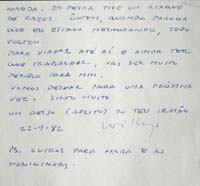 WANDA. 2ª FEIRA TIVE UM ATAQUE
DE CAZES. ONTEM, QUANDO PARECIA
QUE EU ESTAVA MELHORANDO, TUDO
VOLTOU.
PARA VIAJAR ATÉ AÍ E AINDA TER
QUE TRABALHAR, VAI SER MUITO
PENOSO PARA MIM.
VAMOS DEIXAR PARA UMA PRÓXIMA
VEZ. SINTO MUITO
UM BEIJO (AFLITO) DO TEU IRMÃO
22-9-82
PS. OUTROS PARA MARA E AS
MENININHAS.